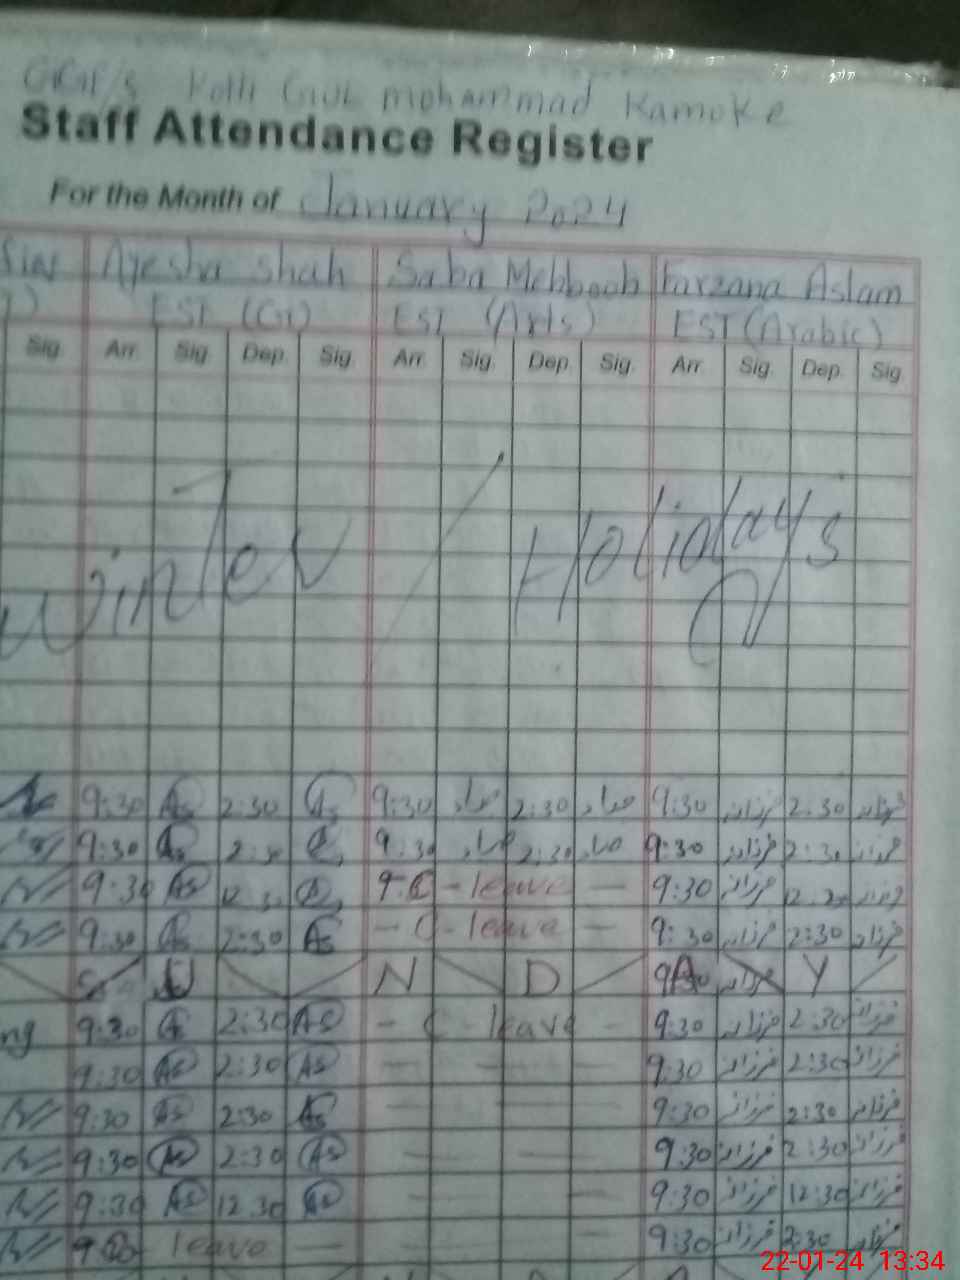 Kotli Gul mohammad Kamoke
Staff Attendance Register
For the Month of January 2024
Ayesha shah Saba Mehboob Farzana Aslam
EST (Arts) EST (Arabic)
Sig. Arr. Sig. Dep. Sig. Arr. Sig. Dep. Sig. Arr. Sig. Dep. Sig.
Winter / Holidays
9:30 As 2:30 As 9:30 صباء 2:30 صباء 9:30 فرزانہ 2:30 فرزانہ
9:30 2:30 9:30 صباء 2:30 صباء 9:30 فرزانہ 2:30 فرزانہ
9:30 As 12:30 C-leave — 9:30 فرزانہ 12:30 فرزانہ
9:30 2:30 As - C-leave — 9:30 فرزانہ 2:30 فرزانہ
S U N D A Y
9:30 2:30 As - C-leave - 9:30 فرزانہ 2:30 فرزانہ
9:30 As 2:30 As 9:30 فرزانہ 2:30 فرزانہ
9:30 As 2:30 As 9:30 فرزانہ 2:30 فرزانہ
9:30 As 2:30 As 9:30 فرزانہ 2:30 فرزانہ
9:30 As 12:30 As 9:30 فرزانہ 12:30 فرزانہ
leave — 9:30 فرزانہ 2:30 فرزانہ
22-01-24 13:34